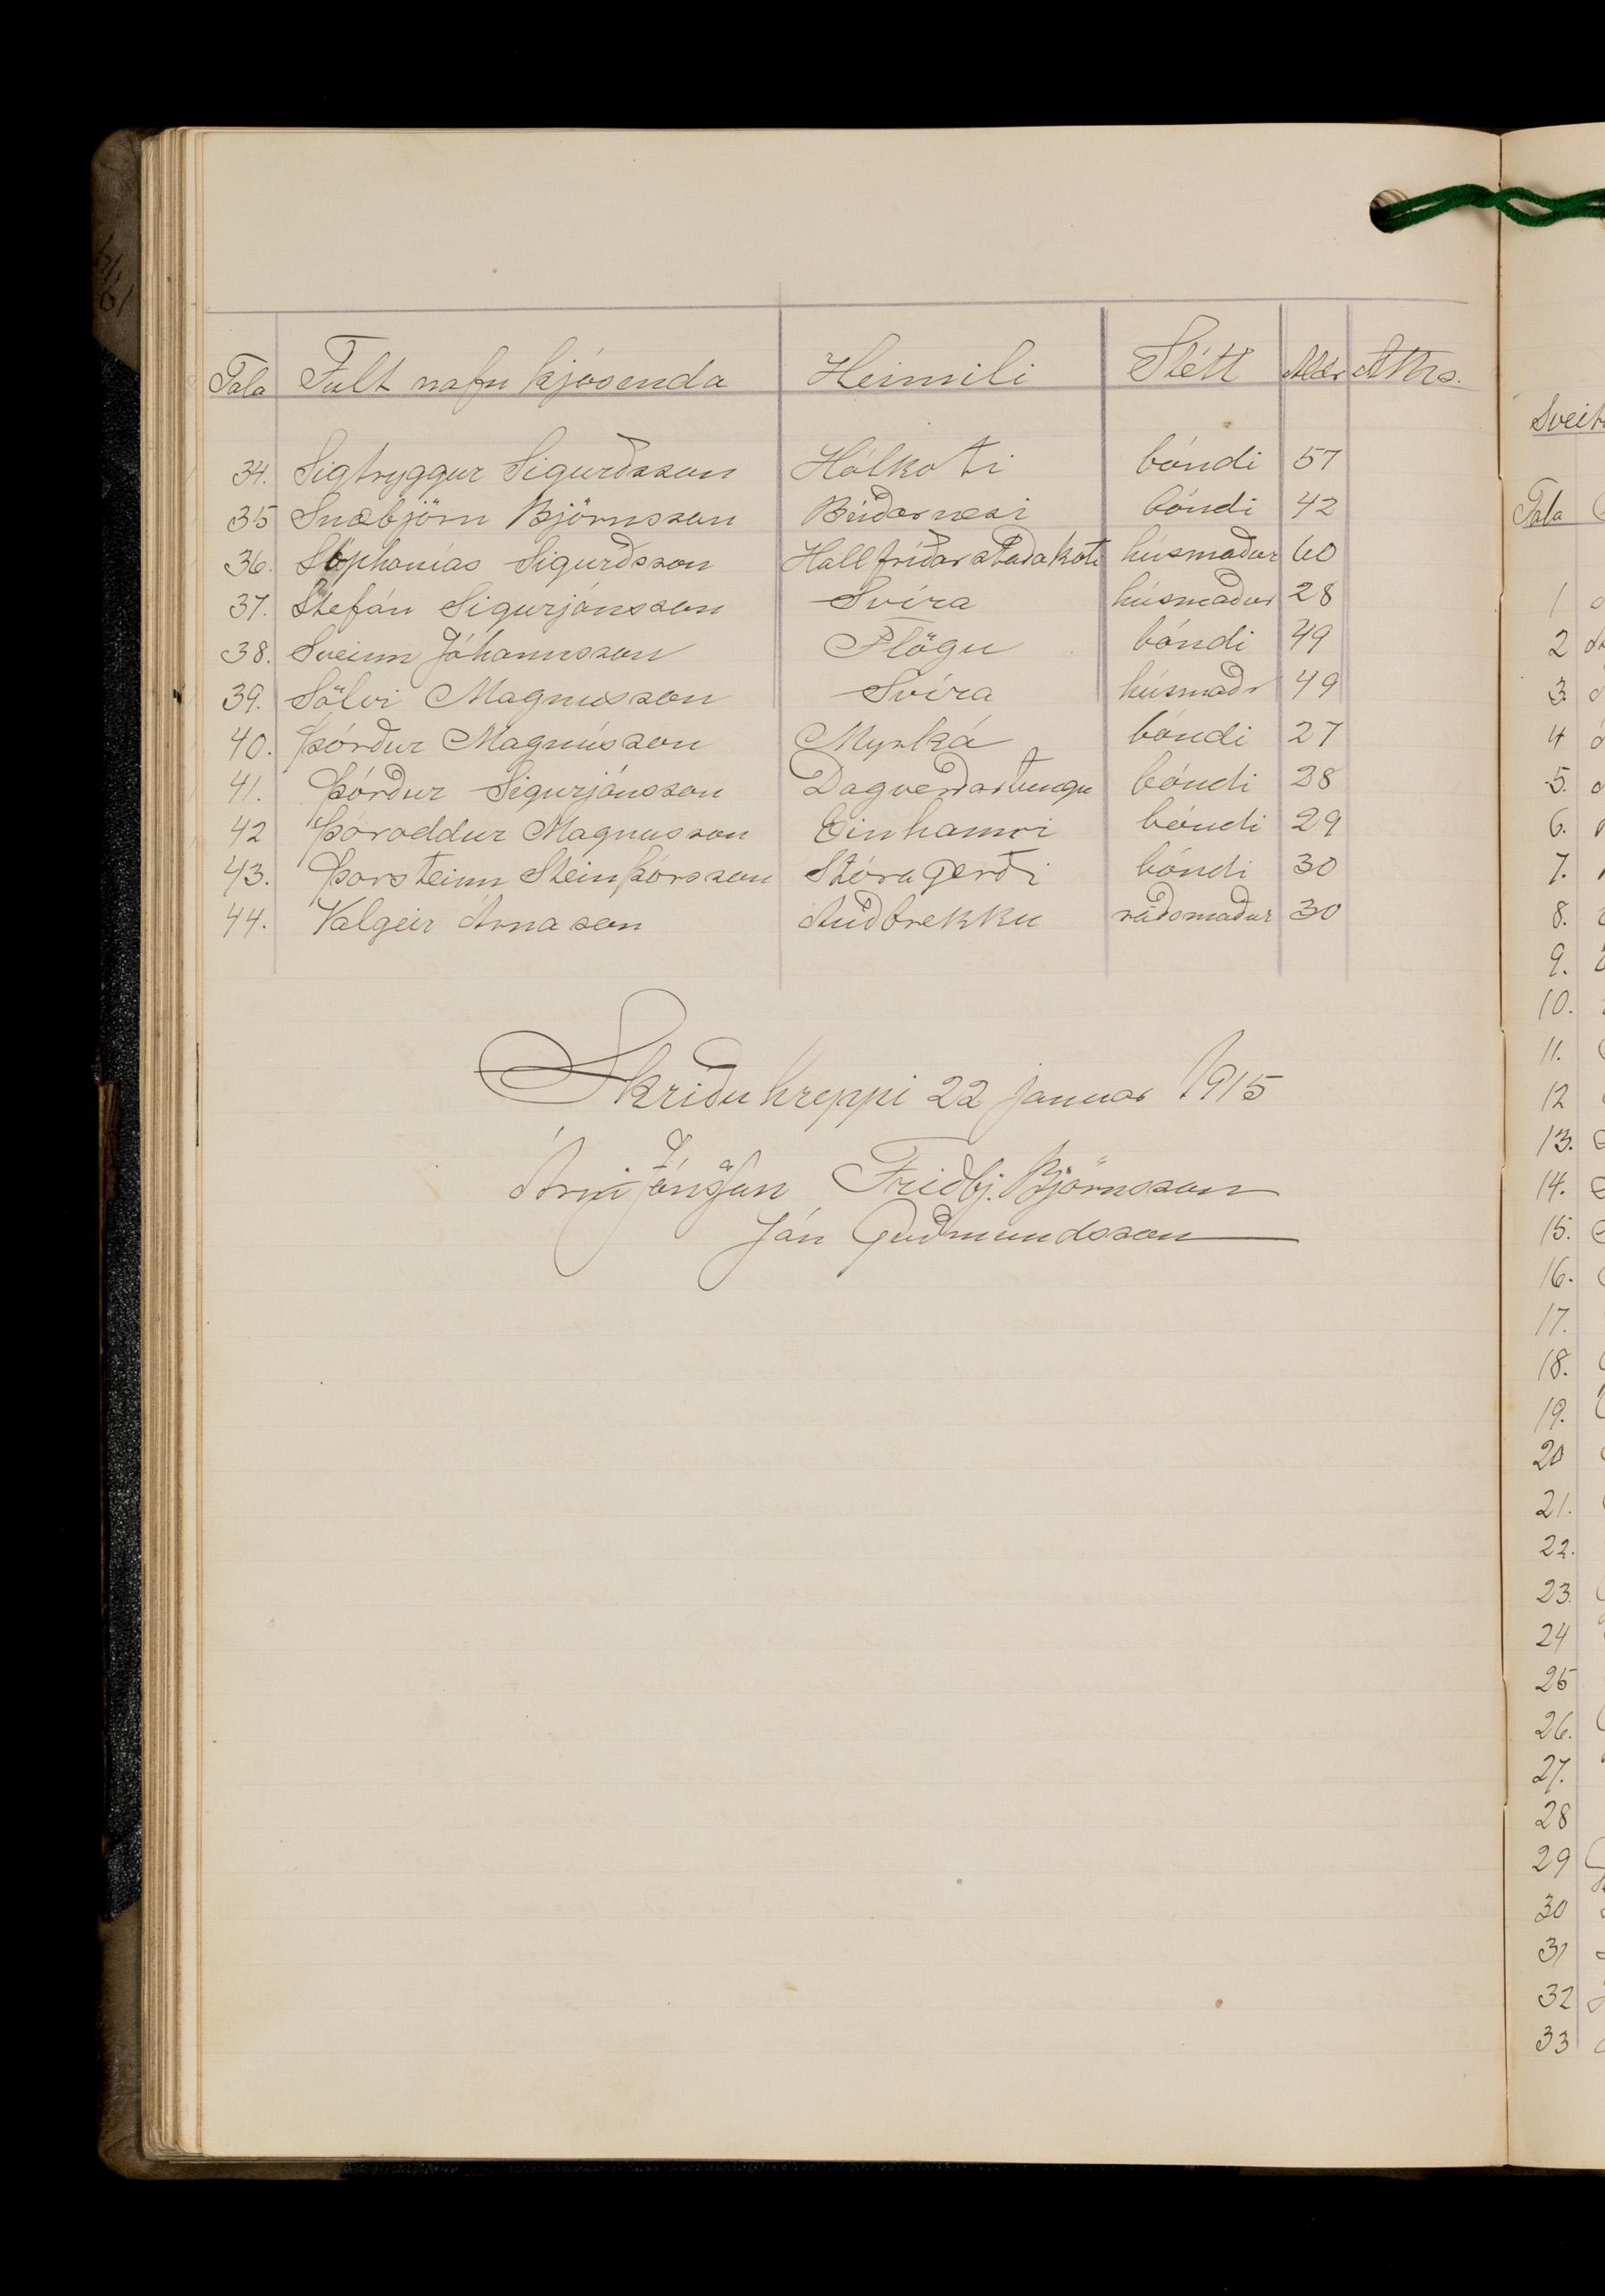 Tala Fult nafn kjósenda Heimili Stétt Aldr Aths.
34. Sigtryggur Sigurðsson Hólkoti bóndi 57
35 Snæbjörn Björnsson Búðarnesi bóndi 42
36. Sophonías Sigurðsson Hallfríðarstaðakoti húsmaður 60
37. Stefán Sigurjónsson Svíra húsmaður 28
38. Sveinn Jóhannsson Flögu bóndi 49
39. Sölvi Magnússon Svíra húsmaðr 49
40. Þórður Magnússon Myrká bóndi 27
41. Þórður Sigurjónsson Dagverðartungu bóndi 28
42 Þóroddur Magnusson Einhamri bóndi 29
43. Þorsteinn Steinþórsson Stóragerði bóndi 30
44. Valgeir Árnason Auðbrekku ráðsmaður 30
Skriðuhreppi 22 januar 1915
Árni Jónsson Friðbj. Björnsson
Jón Guðmundsson
Sveit
Tala
1
2
3.
4
5.
6.
7.
8.
9.
10.
11.
12
13.
14.
15.
16.
17.
18.
19.
20
21.
22.
23.
24
25
26.
27.
28
29
30
31
32
33